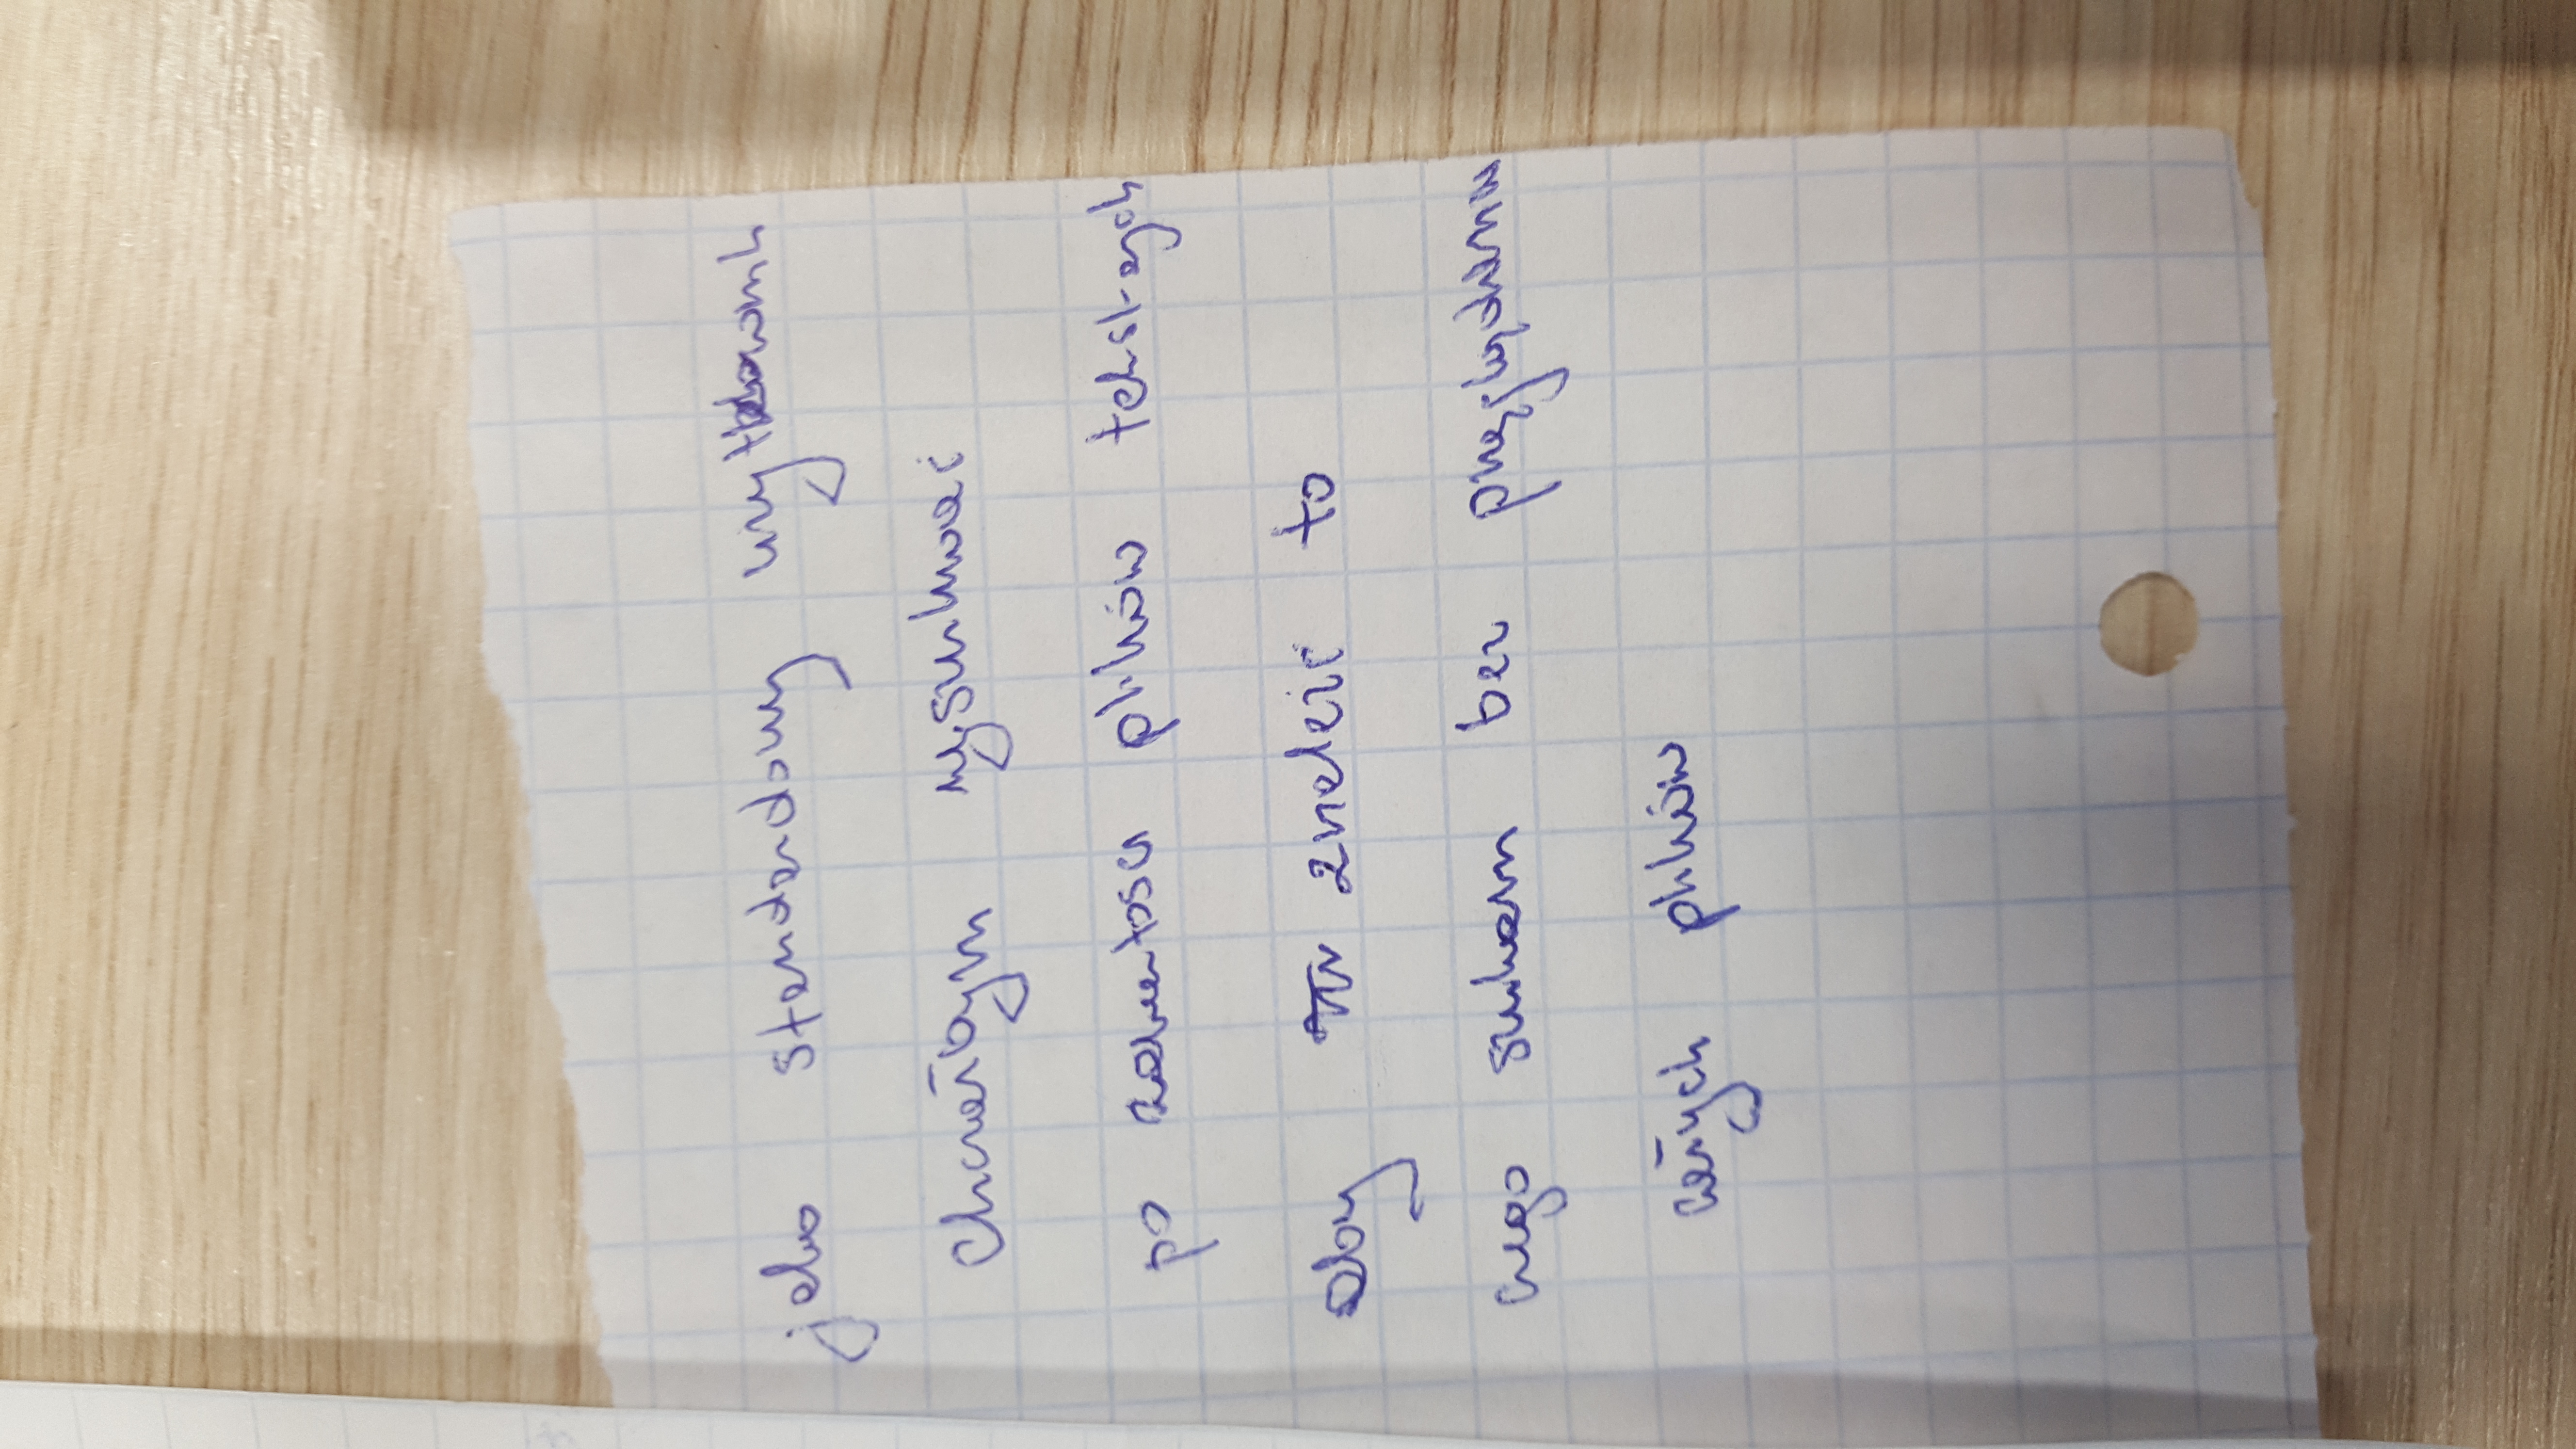 jako standardowy użytkownik
chciałbym wyszukiwać
po zawartości plików tekstowych
aby znaleźć to
czego szukam bez przeglądania
całych plików